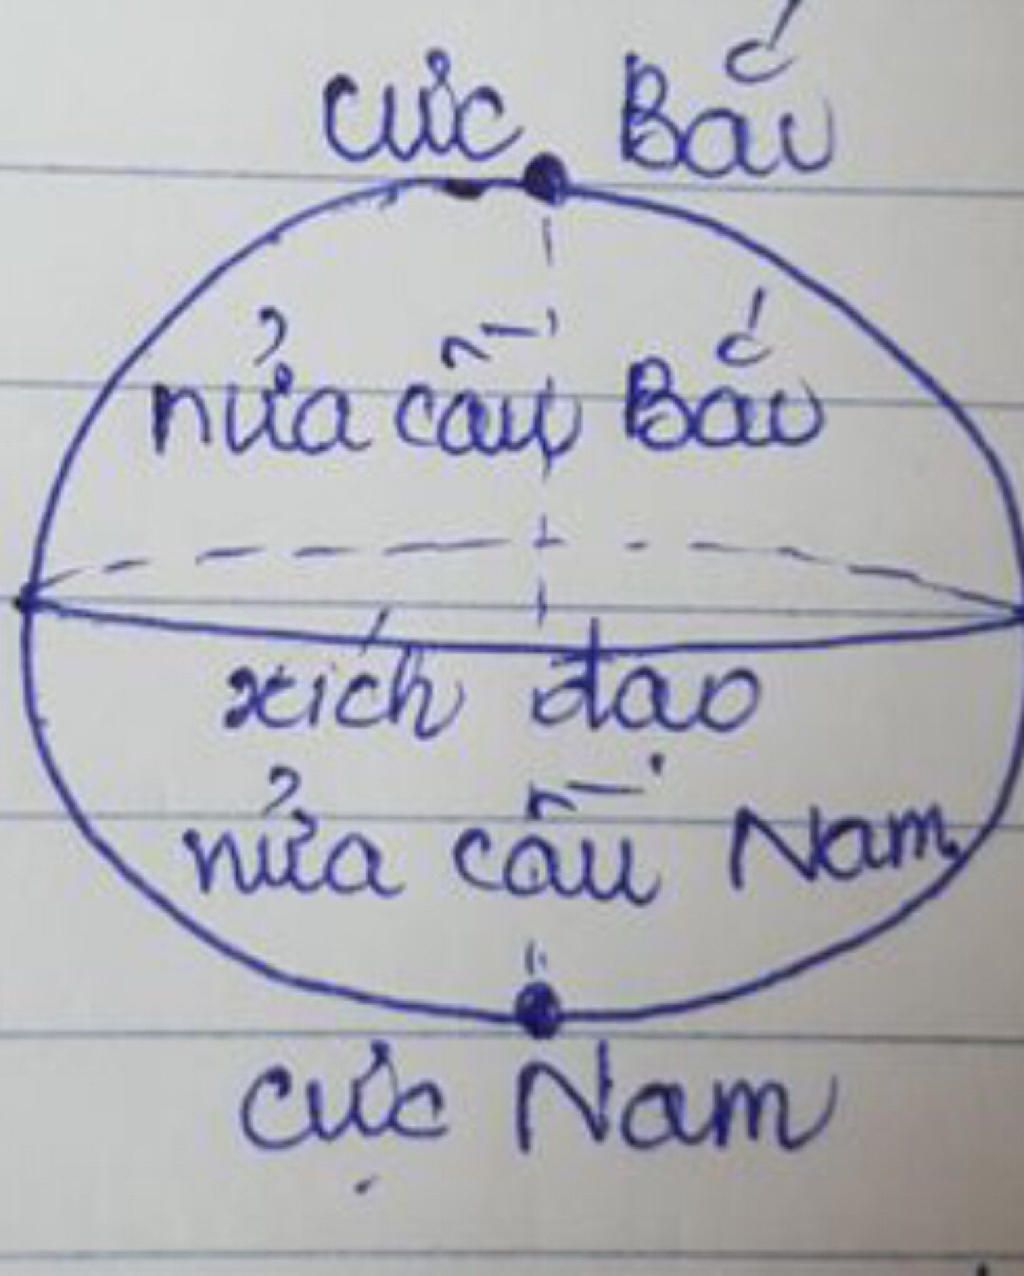 cực Bắc
nửa cầu Bắc
xích đạo
nửa cầu Nam
cực Nam